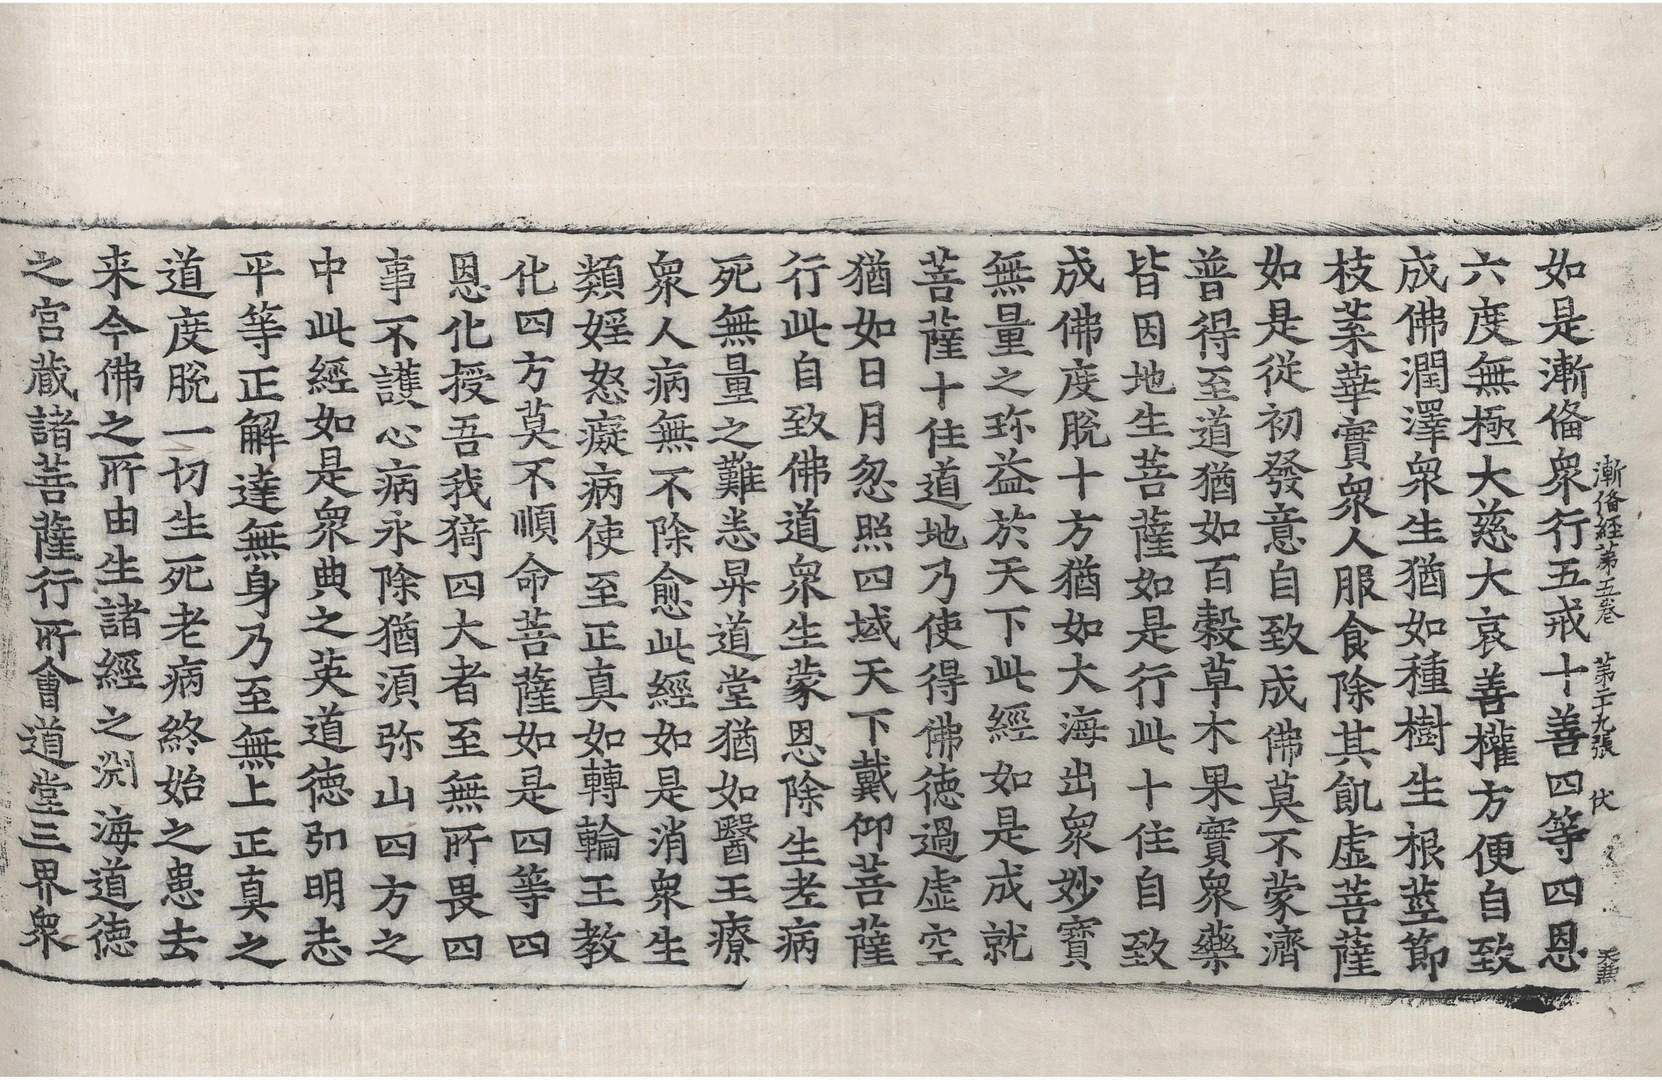 漸俻經第五卷　第二十九張　伏
如是漸俻衆行五戒十善四等四恩
六度無極大慈大哀善權方便自致
成佛潤澤衆生猶如種樹生根莖節
枝葉華實衆人服食除其飢虛菩薩
如是從初發意自致成佛莫不蒙濟
普得至道猶如百穀草木果實衆藥
皆因地生菩薩如是行此十住自致
成佛度脫十方猶如大海出衆妙寶
無量之珎益於天下此經如是成就
菩薩十住道地乃使得佛德過虛空
猶如日月忽照四域天下戴仰菩薩
行此自致佛道衆生蒙恩除生老病
死無量之難恙昇道堂猶如醫王療
衆人病無不除愈此經如是消衆生
類婬怒癡病使至正真如轉輪王教
化四方莫不順命菩薩如是四等四
恩化授吾我猗四大者至無所畏四
事不護心病永除猶湏弥山四方之
中此經如是衆典之英道德弘明志
平等正解達無身乃至無上正真之
道度脫一切生死老病終始之患去
来今佛之所由生諸經之淵海道德
之宫藏諸菩薩行所會道堂三界衆